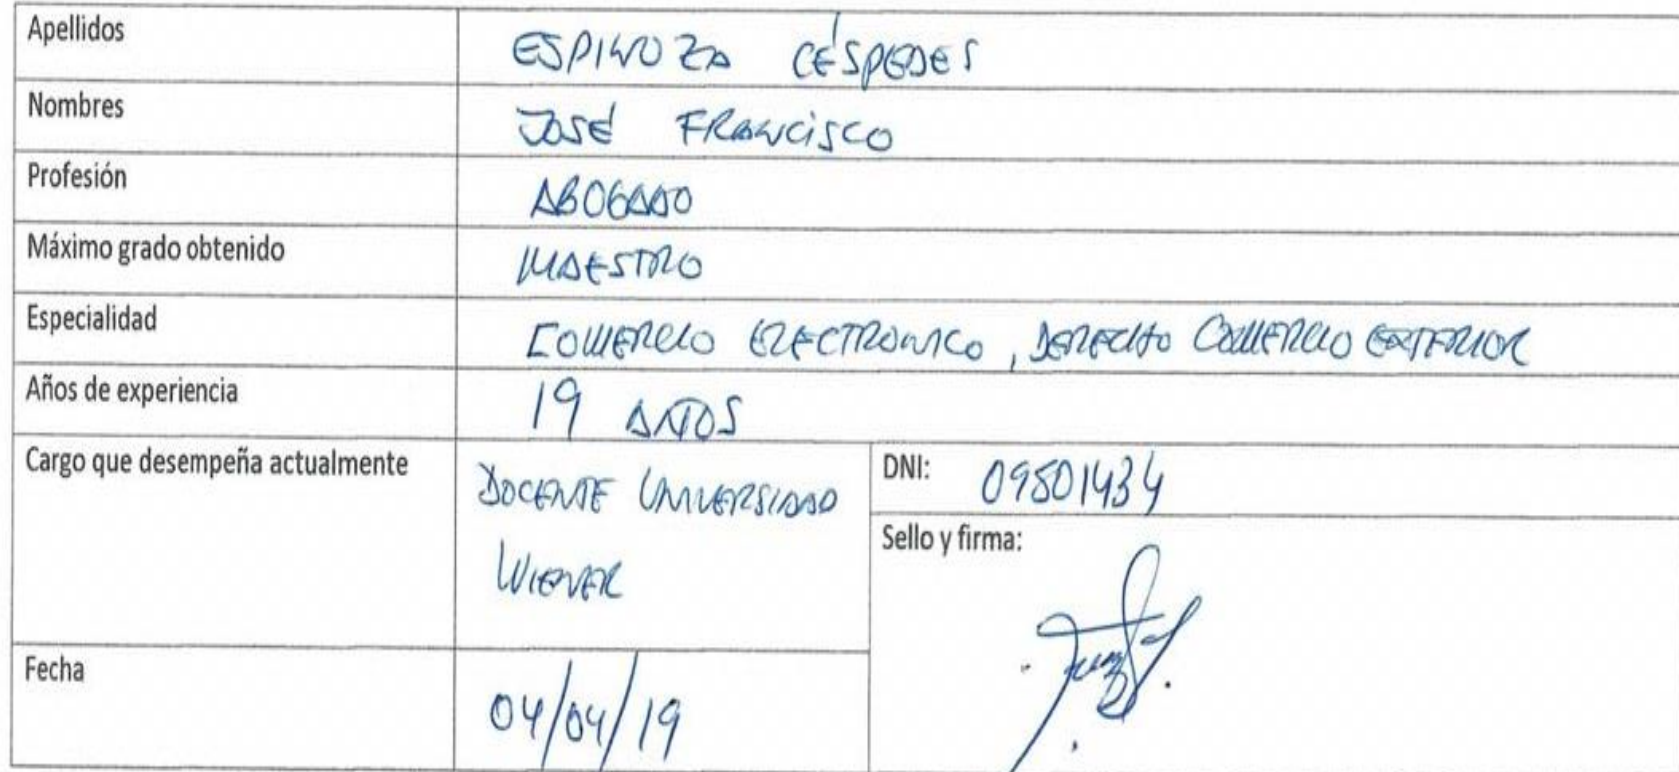 Apellidos ESPINOZA CÉSPEDES
Nombres JOSÉ FRANCISCO
Profesión ABOGADO
Máximo grado obtenido MAESTRO
Especialidad COMERCIO ELECTRONICO, DERECHO COMERCIO EXTERIOR
Años de experiencia 19 AÑOS
Cargo que desempeña actualmente DOCENTE UNIVERSIDAD
WIENER
DNI: 09501434
Sello y firma:
Fecha 04/04/19